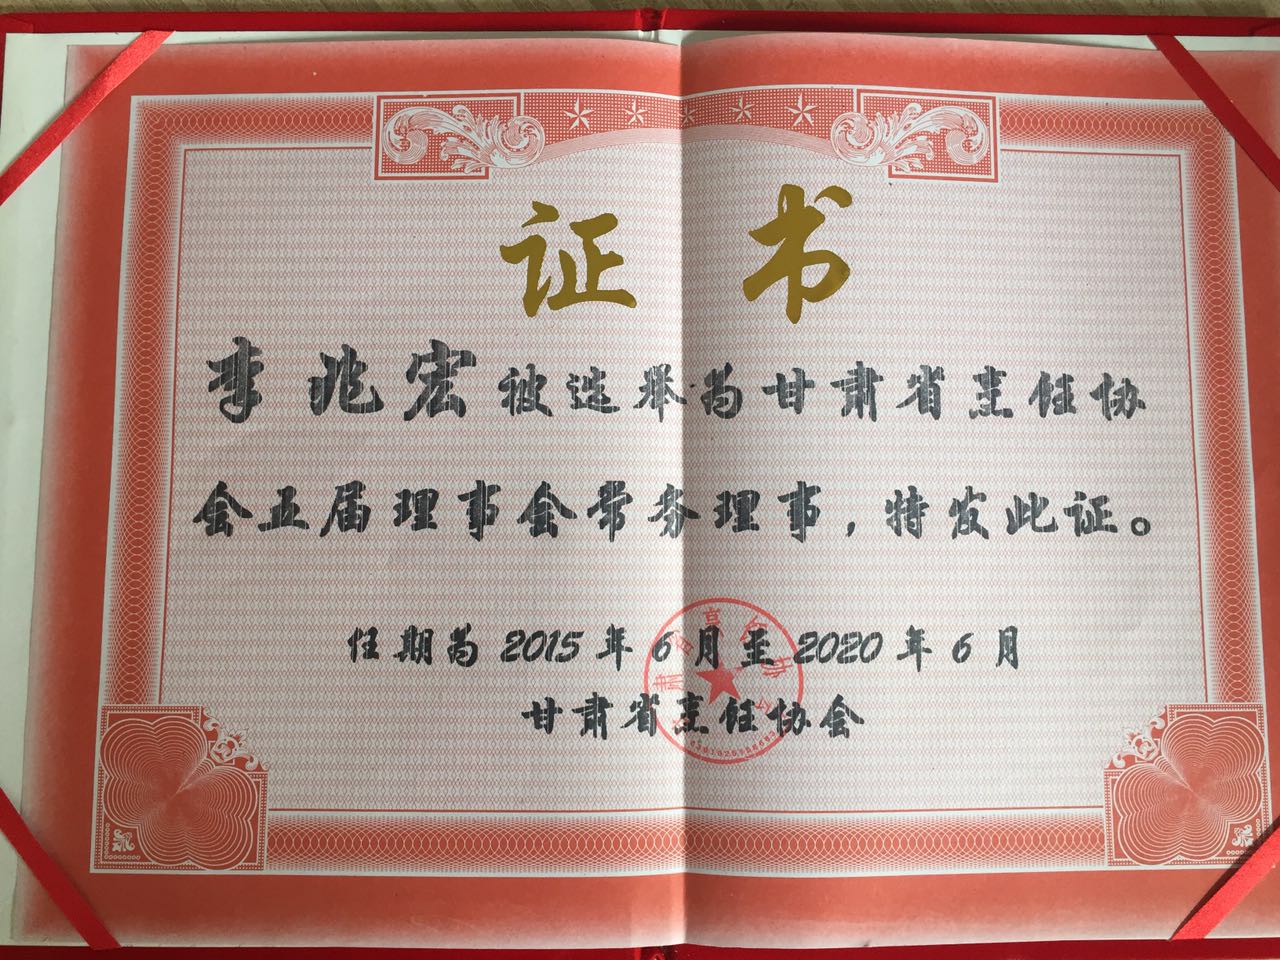 证书
李兆宏被选举为甘肃省烹饪协
会五届理事会常务理事,特发此证。
任期为2015年6月至2020年6月
甘肃省烹饪协会